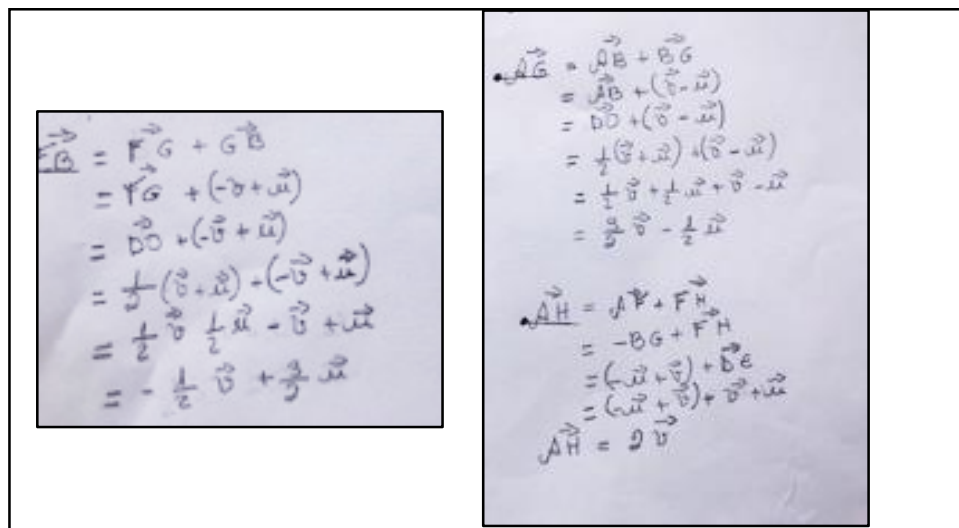 $\vec{FB} = \vec{FG} + \vec{GB}$
$= \vec{FG} + (-\vec{v} + \vec{u})$
$= \vec{DO} + (-\vec{v} + \vec{u})$
$= \frac{1}{2}(\vec{v} + \vec{u}) + (-\vec{v} + \vec{u})$
$= \frac{1}{2}\vec{v} \frac{1}{2}\vec{u} - \vec{v} + \vec{u}$
$= -\frac{1}{2}\vec{v} + \frac{3}{2}\vec{u}$
$\vec{AG} = \vec{AB} + \vec{BG}$
$= \vec{AB} + (\vec{v} - \vec{u})$
$= \vec{DO} + (\vec{v} - \vec{u})$
$= \frac{1}{2}(\vec{v} + \vec{u}) + (\vec{v} - \vec{u})$
$= \frac{1}{2}\vec{v} + \frac{1}{2}\vec{u} + \vec{v} - \vec{u}$
$= \frac{3}{2}\vec{v} - \frac{1}{2}\vec{u}$
$\vec{AH} = \vec{AF} + \vec{FH}$
$= -BG + \vec{FH}$
$= (-\vec{u} + \vec{v}) + \vec{DE}$
$= (-\vec{u} + \vec{v}) + \vec{v} + \vec{u}$
$\vec{AH} = 2\vec{v}$